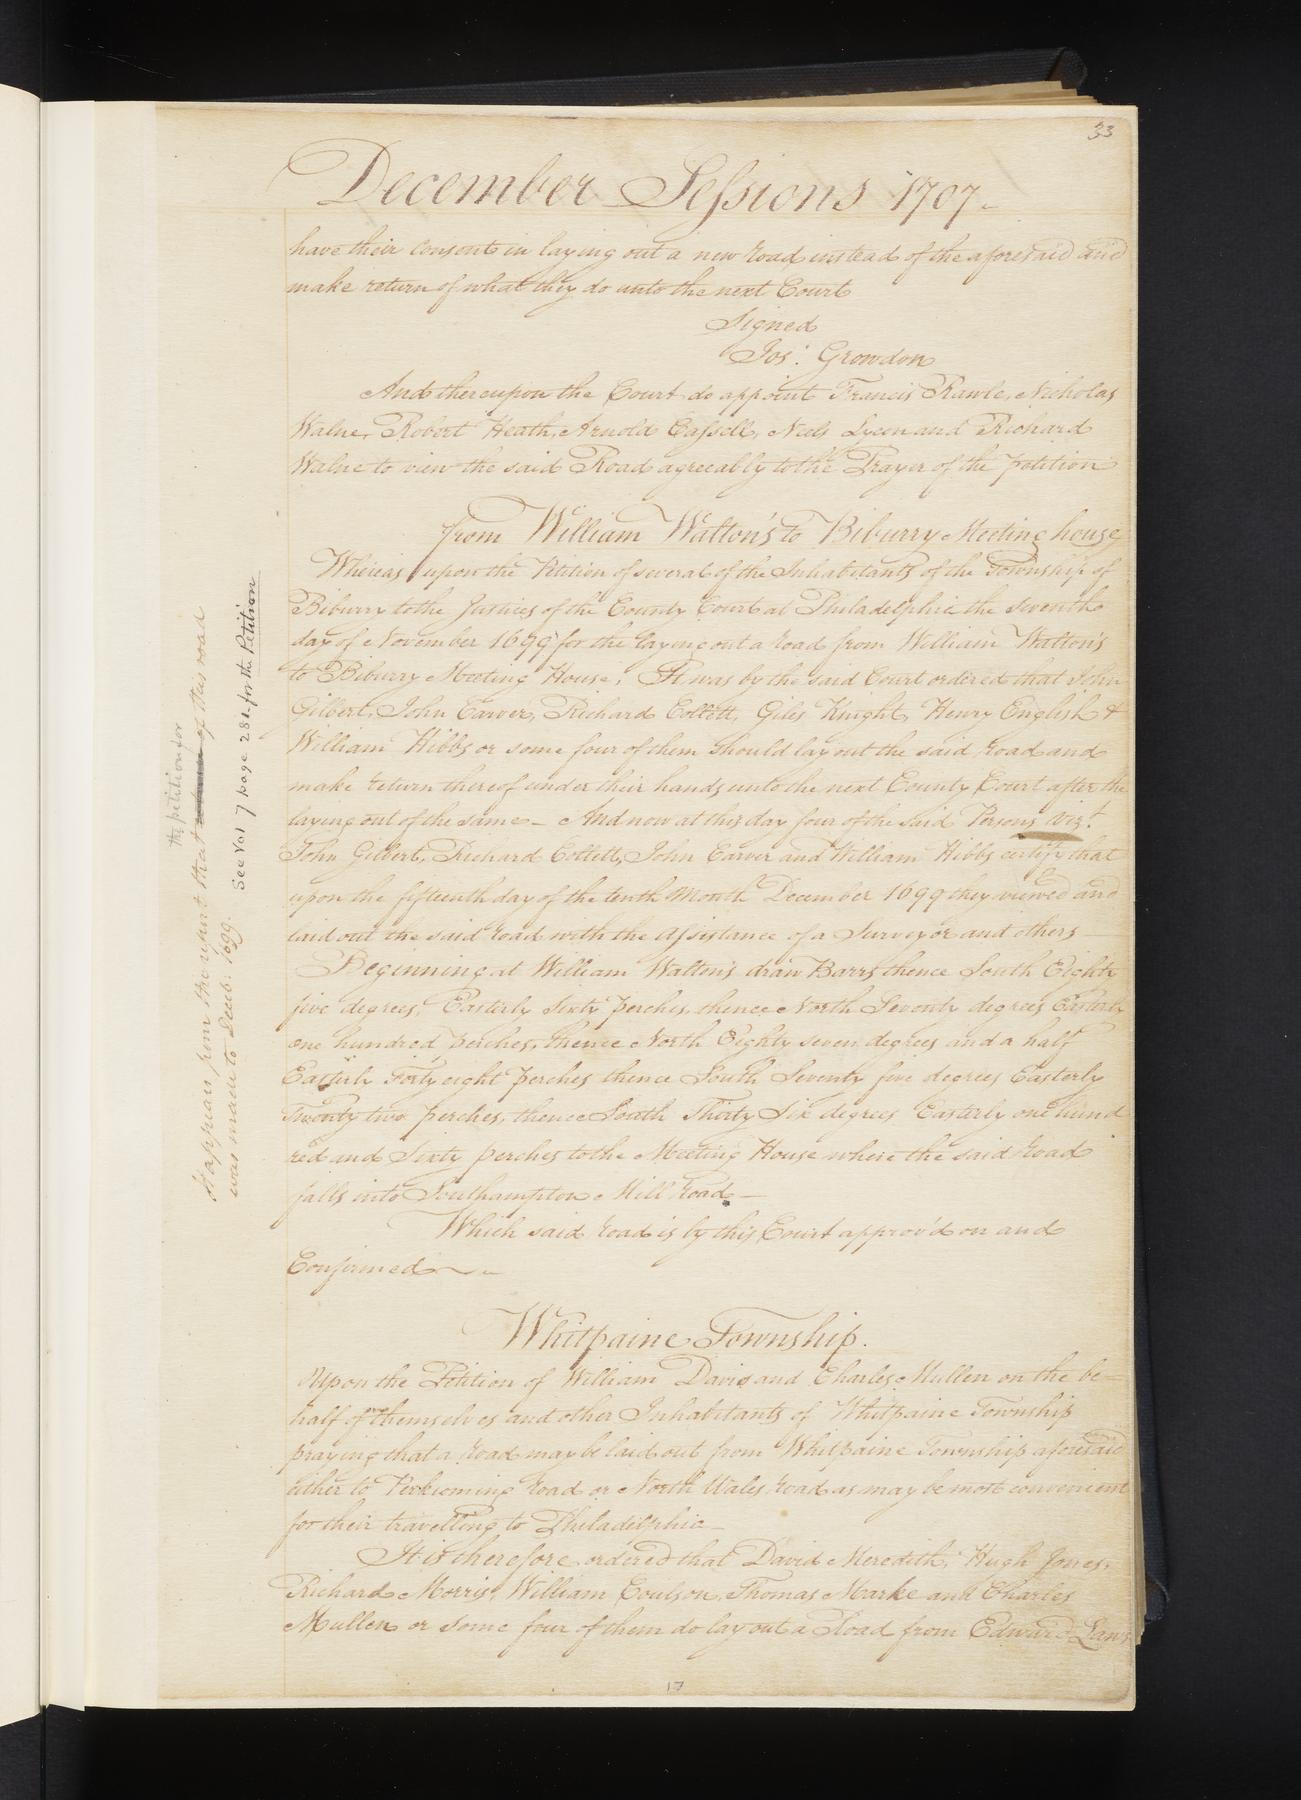 33
December Sessions 1707.
have their Consents in laying out a new road instead of the aforesaid and
make return of what they do unto the next Court
Signed
Jos: Growdon
And thereupon the Court do appoint Francis Rawle, Nicholas
Walne, Robert Heath, Arnold Cassell, Neels Lycen and Richard
Walne to view the said Road agreeably to the Prayer of the petition
from William Walton's to Biburry Meeting house
Whereas upon the Petition of several of the Inhabitants of the Township of
Biburry to the Justices of the County Court at Philadelphia the seventh
day of November 1699 for the laying out a road from William Walton's
to Biburry Meeting House; It was by the said Court ordered that John
Gilbert, John Carver, Richard Collett, Giles Knight, Henry English &
William Hibbs or some four of them should lay out the said road and
make return thereof under their hands unto the next County Court after the
laying out of the same - And now at this day four of the said Persons vizt.
John Gilbert, Richard Collett, John Carver and William Hibbs certify that
upon the fifteenth day of the tenth Month December 1699 they viewed and
laid out the said road with the Assistance of a Surveyor and others
Beginning at William Walton's draw Barrs thence South Eighty
five degrees, Easterly sixty perches, thence North Seventy degrees Easterly
one hundred perches, thence North Eighty seven degrees and a half
Easterly Forty eight perches thence South Seventy five degrees Easterly
Twenty two perches, thence South Thirty Six degrees Easterly one hund
red and Sixty perches to the Meeting House where the said road
falls into Southampton Mill road -
Which said road is by this Court approv'd on and
Confirmed
Whitpaine Township.
Upon the Petition of William Davis and Charles Mullen on the be-
half of themselves and other Inhabitants of Whitpaine Township
praying that a road may be laid out from Whitpaine Township aforesaid
either to Perkioming road or North Wales road as may be most convenient
for their travelling to Philadelphia -
It is therefore ordered that David Meredith, Hugh Jones,
Richard Morris, William Coulson, Thomas Marke and Charles
Mullen or some four of them do lay out a Road from Edward Lans
17
the petition for
It appears from the report that of this road
was made to Decb. 1699.
See Vol 7 page 282 for the Petition